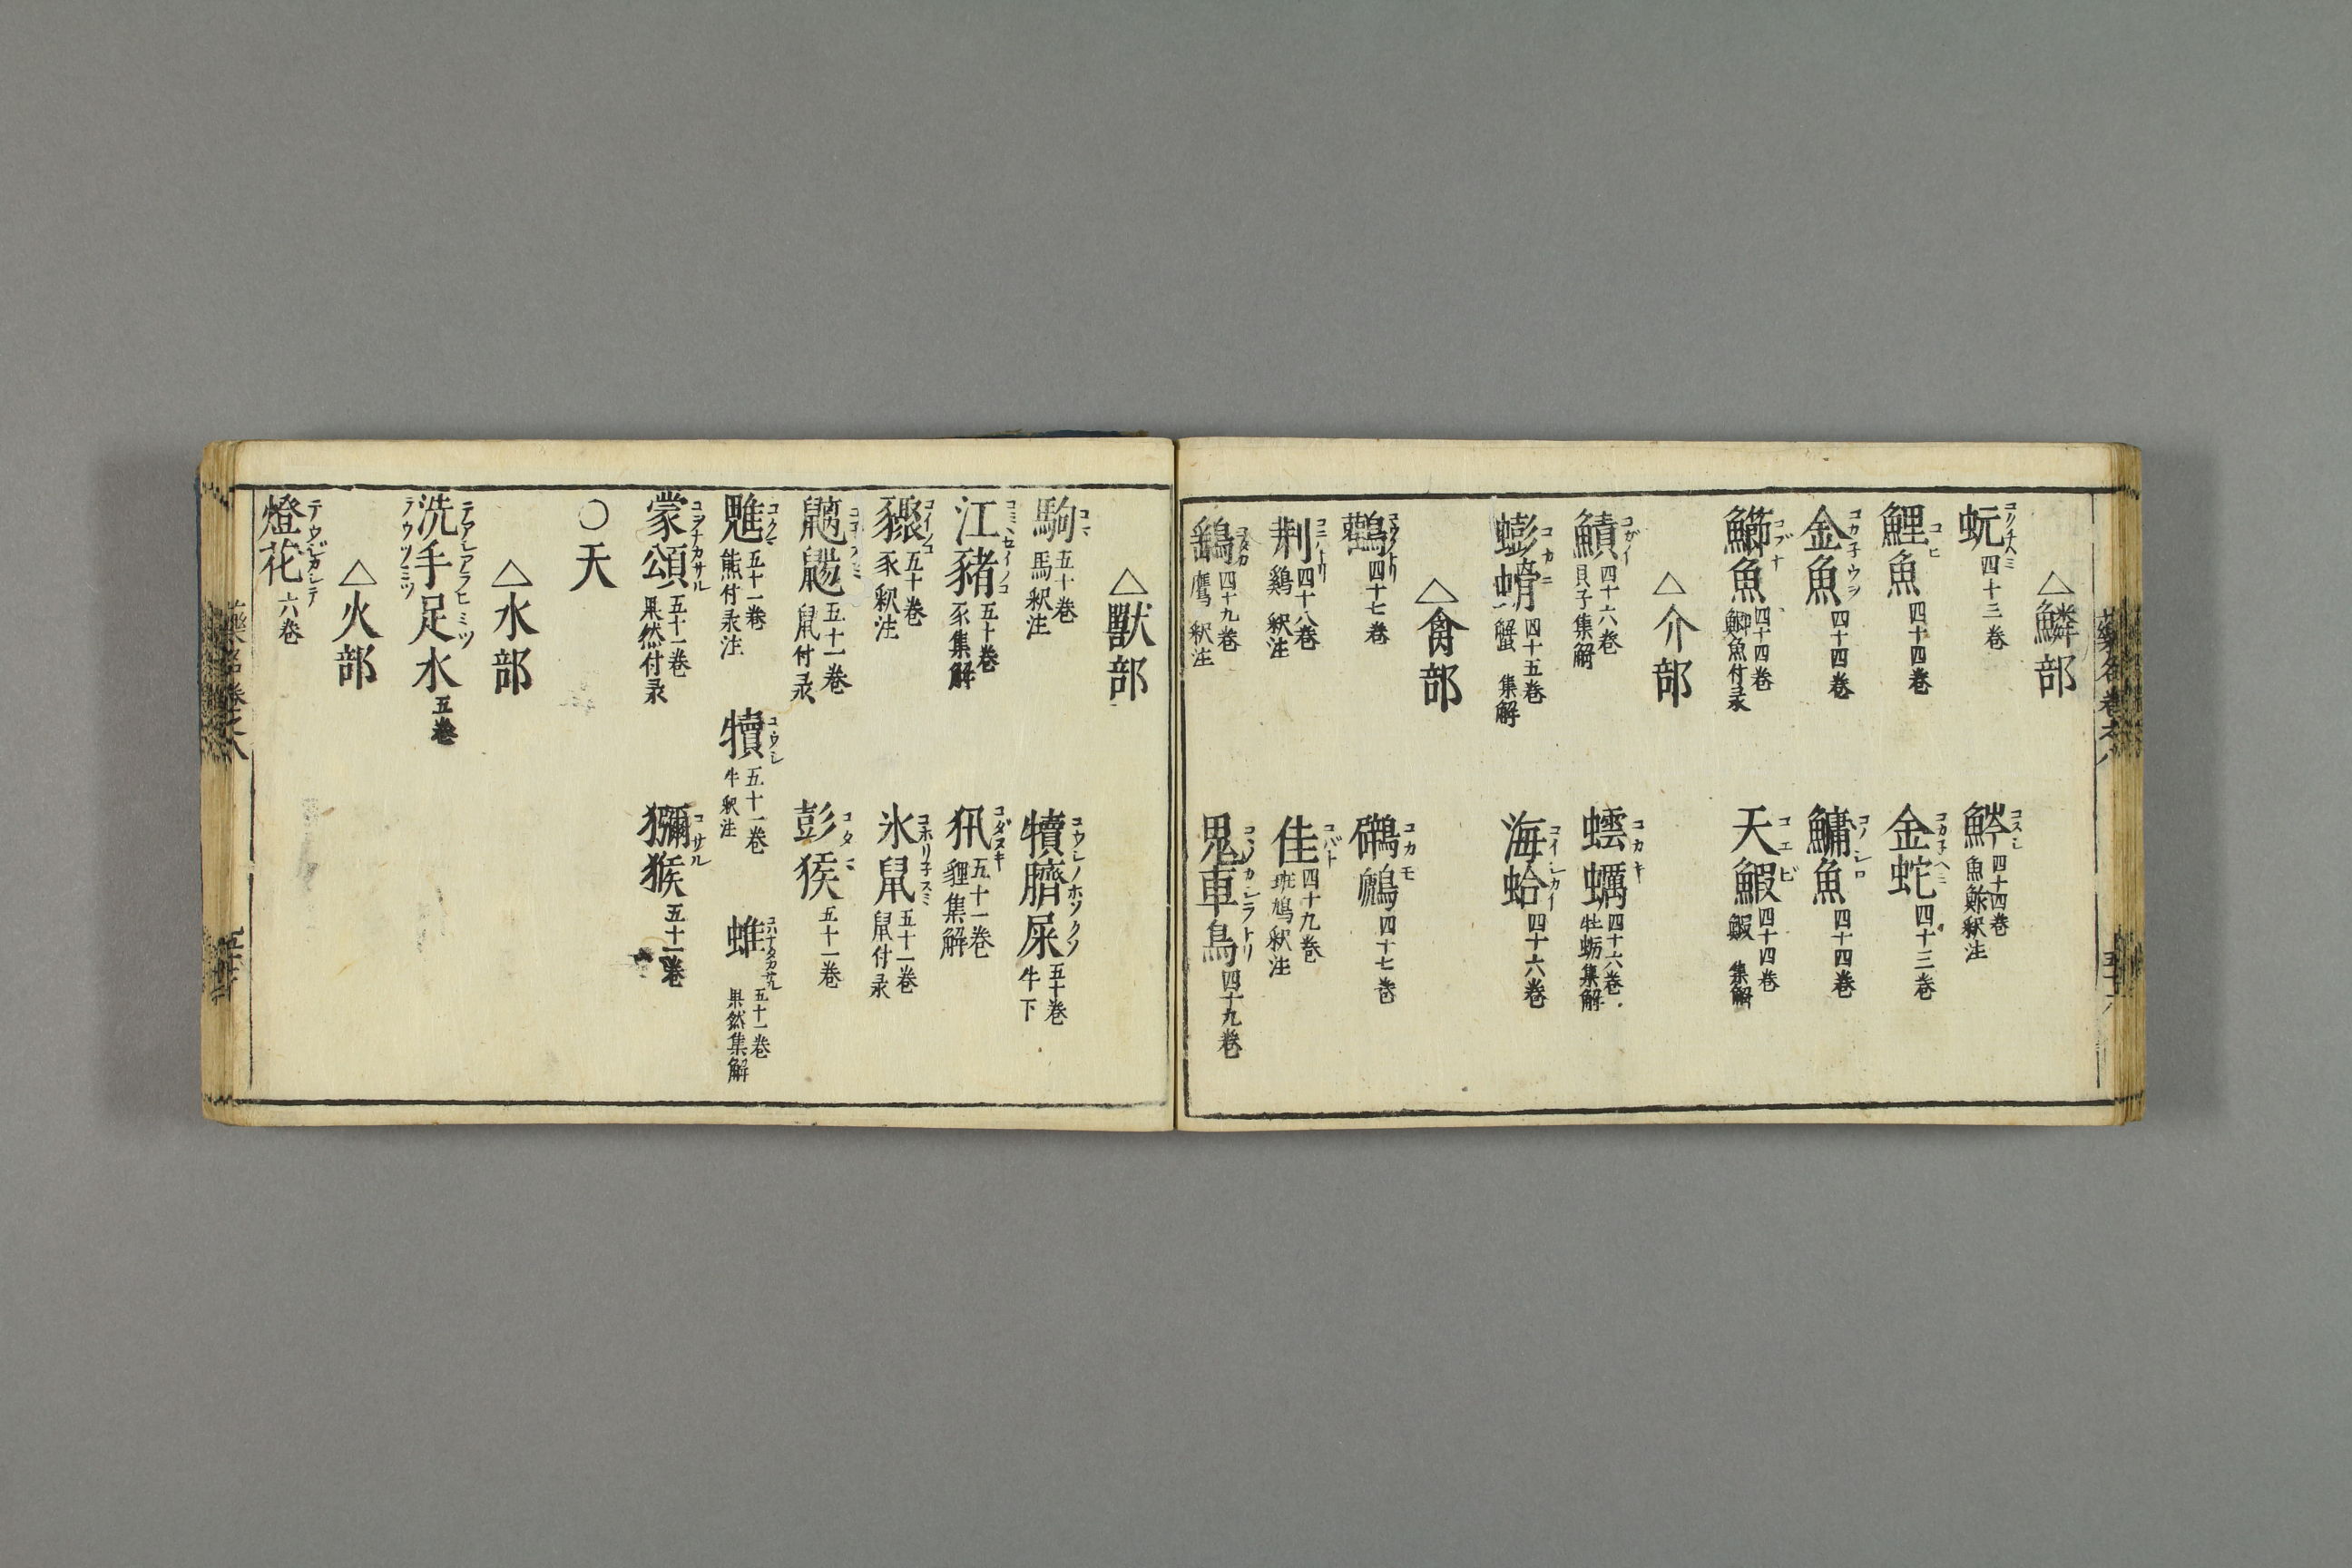 △鱗部
蚖 四十三巻
魿 コスシ 四十四巻 魚鮓釈注
鯉魚 コヒ 四十四巻
金蛇 コカ子ヘミ 四十三巻
金魚 コカ子ウヲ 四十四巻
鱅魚 コノシロ 四十四巻
鰤魚 コブナ 四十四巻 鯽魚付录
天鰕 コエビ 四十四巻 鰕 集解
△介部
鰿 コガイ 四十六巻 貝子集解
蠣 コカキ 四十六巻 牡蛎集解
蟛螖 コカニ 四十五巻 蟹 集解
海蛤 コイシカイ 四十六巻
△禽部
鸛 四十七巻
鷉 コカモ 四十七巻
コニハトリ 四十八巻 鷄 釈注
隹 コバト 四十九巻 斑鳩釈注
鷂 コタカ 四十九巻 鷹 釈注
鬼車鳥 四十九巻
△獣部
駒 コマ 五十巻 馬釈注
犢臍屎 コウシノホソクソ 五十巻 牛下
江豬 五十巻 豕集解
犰 コダヌキ 五十一巻 貍集解
豯 コイノコ 五十巻 豕釈注
氷鼠 コホリ子スミ 五十一巻 鼠付录
五十一巻 鼠付录
彭猴 コタマ 五十一巻
魋 コクマ 五十一巻 熊付录注
犢 コウシ 五十一巻 牛釈注
蜼 五十一巻 果然集解
蒙頌 コヲナカサル 五十一巻 果然付录
獼猴 コサル 五十一巻
○天
△水部
洗手足水 テアシアラヒミツ テウツミツ 五巻
△火部
燈花 六巻